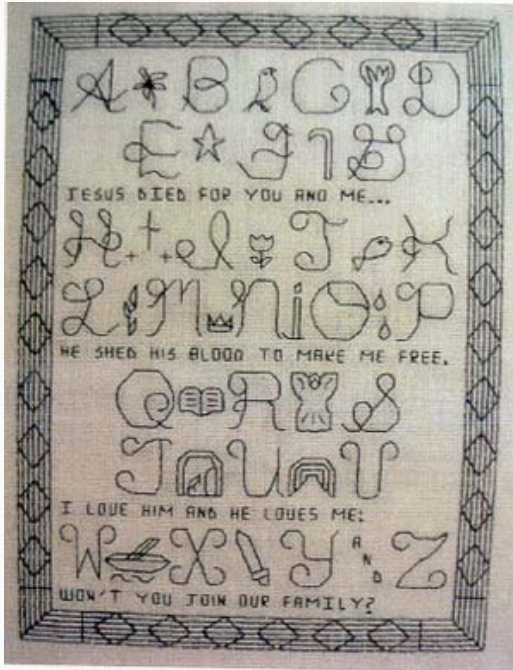 A B C D
E F G
JESUS DIED FOR YOU AND ME...
H I J K
L M N O P
HE SHED HIS BLOOD TO MAKE ME FREE.
Q R S
T U V
I LOVE HIM AND HE LOVES ME;
W X Y AND Z
WON'T YOU JOIN OUR FAMILY?